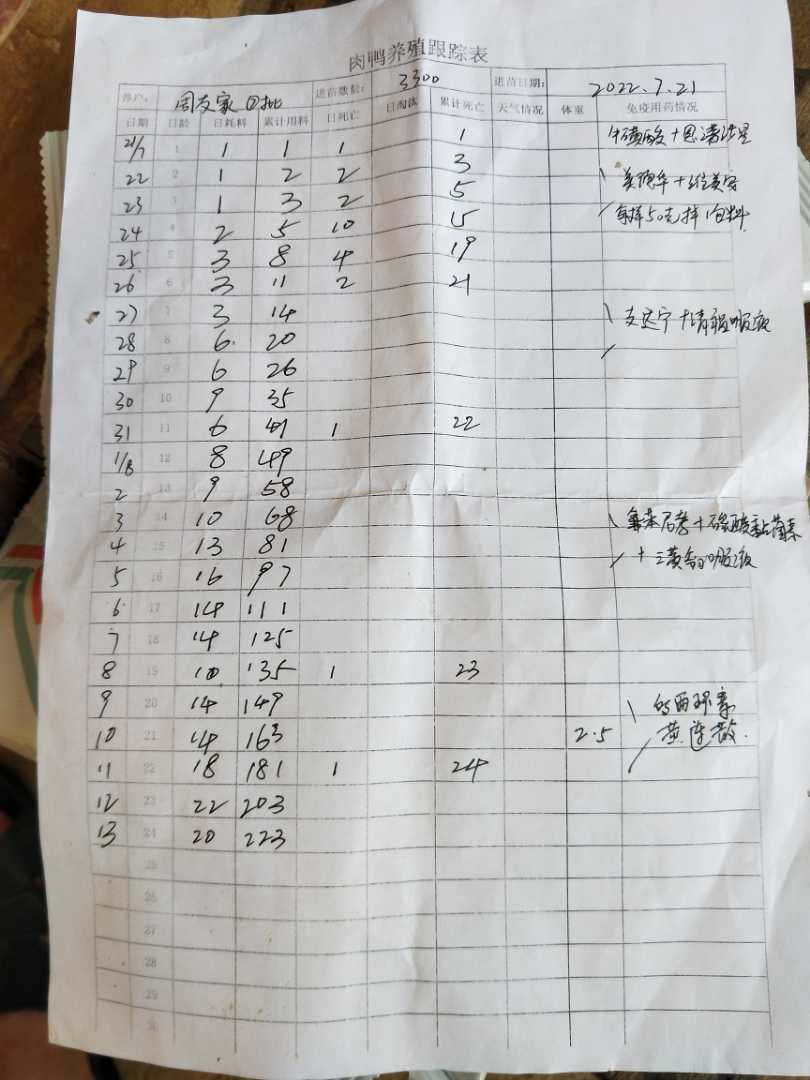 肉鸭养殖跟踪表
养户: 周友家 ②批 进苗数量: 3300 进苗日期: 2022.7.21
日期 日龄 日耗料 累计用料 日死亡 日淘汰 累计死亡 天气情况 体重 免疫用药情况
21/7 1 1 1 1 1
22 2 1 2 2 3
23 3 1 3 2 5 每样50克拌1包料
24 4 2 5 10 15
25 5 3 8 4 19
26 6 3 11 2 21
27 7 3 14
28 8 6 20
29 9 6 26
30 10 9 35
31 11 6 41 1 22
1/8 12 8 49
2 13 9 58
3 14 10 68
4 15 13 81
5 16 16 97
6 17 14 111
7 18 14 125
8 19 10 135 1 23
9 20 14 149
10 21 14 163 2.5 黄连散
11 22 18 181 1 24
12 23 22 203
13 24 20 223
25
26
27
28
29
30